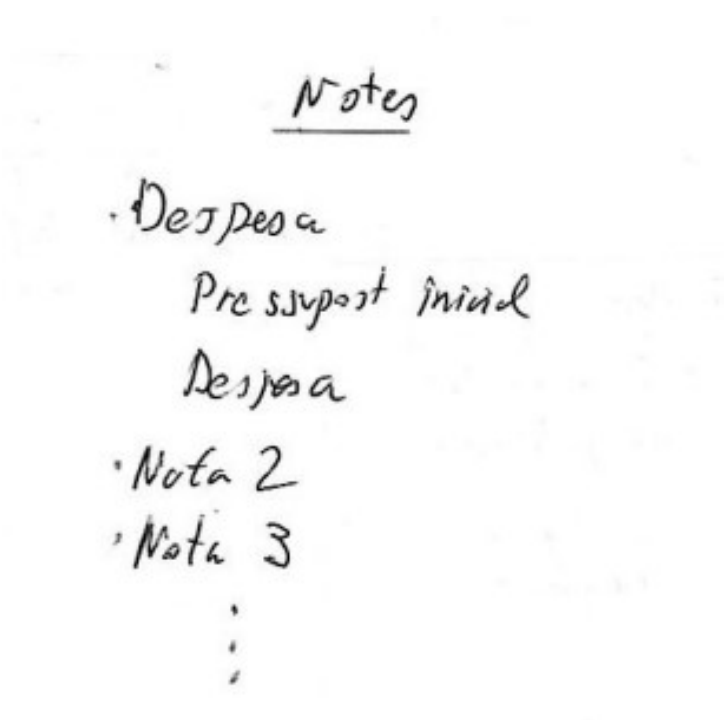 Notes
· Despesa
Pressupost inicial
Despesa
· Nota 2
· Nota 3
⋮